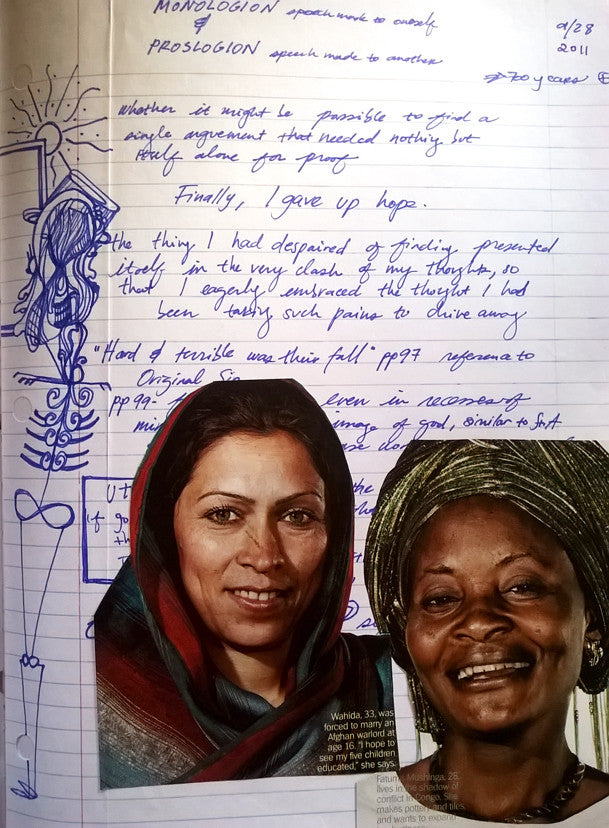 MONOLOGION speech made to oneself
&
PROSLOGION speech made to another
9/28
2011
→700 years
whether it might be possible to find a
single arguement that needed nothing but
itself alone for proof
Finally, I gave up hope.
the thing I had despaired of finding presented
itself in the very clash of my thoughts, so
that I eagerly embraced the thought I had
been taking such pains to drive away
"Hard & terrible was their fall" pp97 reference to
Original Sin
pp99- even in recesses of
image of god, similar to St. A
the
if go
Wahida, 33, was
forced to marry an
Afghan warlord at
age 16. "I hope to
see my five children
educated," she says.
Fatuma Mushinga, 28,
lives in the shadow of
conflict in Congo. She
makes pottery and tiles,
and wants to expand